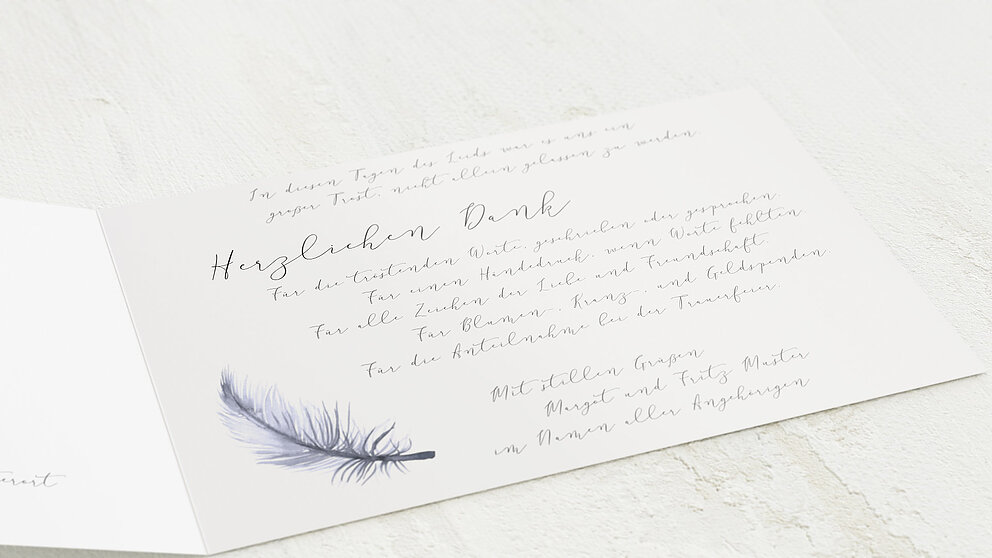 In diesen Tagen des Leids war es uns ein
großer Trost, nicht allein gelassen zu werden.
Herzlichen Dank
Für die tröstenden Worte, geschrieben oder gesprochen.
Für einen Händedruck, wenn Worte fehlten
Für alle Zeichen der Liebe und Freundschaft.
Für Blumen-, Kranz-, und Geldspenden
Für die Anteilnahme bei der Trauerfeier.
Mit stillen Grüßen
Margit und Fritz Muster
im Namen aller Angehörigen